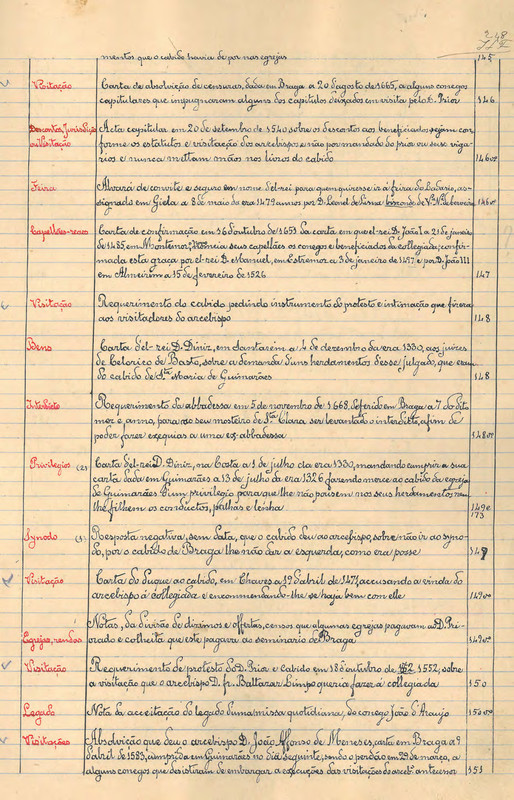 248
mentos que o cabido havia de por nas egrejas 145
Visitação Carta de absolvição de censuras, dada em Braga a 20 d'agosto de 1665, a alguns conegos
capitulares que impugnaram alguns dos capitulos deixados em visita pelo D. Prior 146
Descontos, Jurisdição Acta capitular em 20 de setembro de 1540 sobre os descontos aos beneficiados sejam con-
e Visitação forme os estatutos e visitação dos arcebispos e não por mandado do prior ou seus viga-
rios e nunca mettam mãos nos livros do cabido 146vº
Feira Alvará de convite e seguro em nome d'el-rei para quem quizesse ir á feira do Sabario, as-
signado em Giela a 8 de maio da era 1479 annos por D. Leonel de Lima visconde de Vª Nª de Cerveira 146vº
Capellães-reaes Carta de confirmação em 16 d'outubro de 1653 da carta em que el-rei D. João I a 21 de janeiro
de 1485, em Montemor, nomeia seus capellães os conegos e beneficiados da collegiada; confir-
mada esta graça por el-rei D. Manuel, em Estremoz a 3 de janeiro de 1497 e por D. João III
em Almeirim a 15 de fevereiro de 1526 147
Visitação Requerimento do cabido pedindo instrumento do protesto e intimação que fizera
aos visitadores do arcebispo 148
Bens Carta d'el-rei D. Diniz, em Santarem a 4 de dezembro da era 1330, aos juizes
de Celorico de Basto, sobre a demanda d'uns herdamentos d'esse julgado, que eram
do cabido de S.ta Maria de Guimarães 148
Interdicto Requerimento da abbadessa em 5 de novembro de 1668, deferido em Braga a 7 do dito
mez e anno, para no seu mosteiro de S.ta Clara ser levantado o interdicto, afim de
poder fazer exequias a uma ex-abbadessa 148vº
Privilegios (2) Carta d'el-rei D. Diniz, na Costa a 1 de julho da era 1330, mandando cumprir a sua
carta dada em Guimarães a 13 de julho da era 1326 fazendo merce ao cabido da egreja
de Guimarães d'um privilegio para que lhe não pousem nos seus herdamentos nem
lhe filhem os conductos, palhas e lenha 149 e
173
Synodo (3) Resposta negativa, sem data, que o cabido deu ao arcebispo, sobre não ir ao syno-
do, por o cabido de Braga lhe não dar a esquerda, como era posse 149
Visitação Carta do Duque ao cabido, em Chaves a 19 d'abril de 1471, accusando a vinda do
arcebispo á collegiada e encommendando-lhe se haja bem com elle 149vº
Notas, da divisão de dizimos e offertas, censos que algumas egrejas pagavam ao D. Pri-
Egrejas, rendas orado e colheita que este pagava ao seminario de Braga 149vº
Visitação Requerimento de protesto do D. Prior e Cabido em 18 d'outubro de 1552, sobre
a visitação que o arcebispo D. fr. Balthazar Limpo queria fazer á collegiada 150
Legado Nota da acceitação do legado d'uma missa quotidiana, do conego João d'Araujo 150vº
Visitações Absolvição que deu o arcebispo D. João Affonso de Menezes, carta em Braga a 9
d'abril de 1583, cumprida em Guimarães no dia seguinte, sendo o perdão em 29 de março, a
alguns conegos que desistiram de embargar a execução das visitações do arcebº antecessor 151